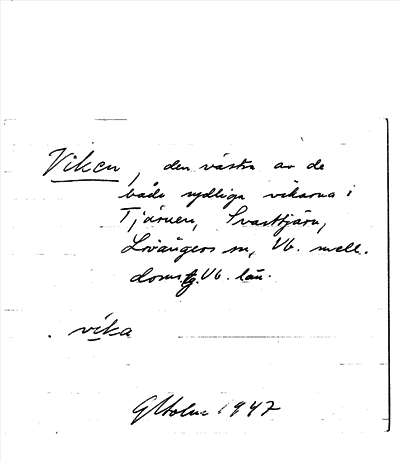 Viken, den västra av de
båda sydliga vikarna i
Tjärnen, Svarttjärn,
Lövångers sn, Vb. mell.
doms. Vb. län.
vika
GHolm 1947